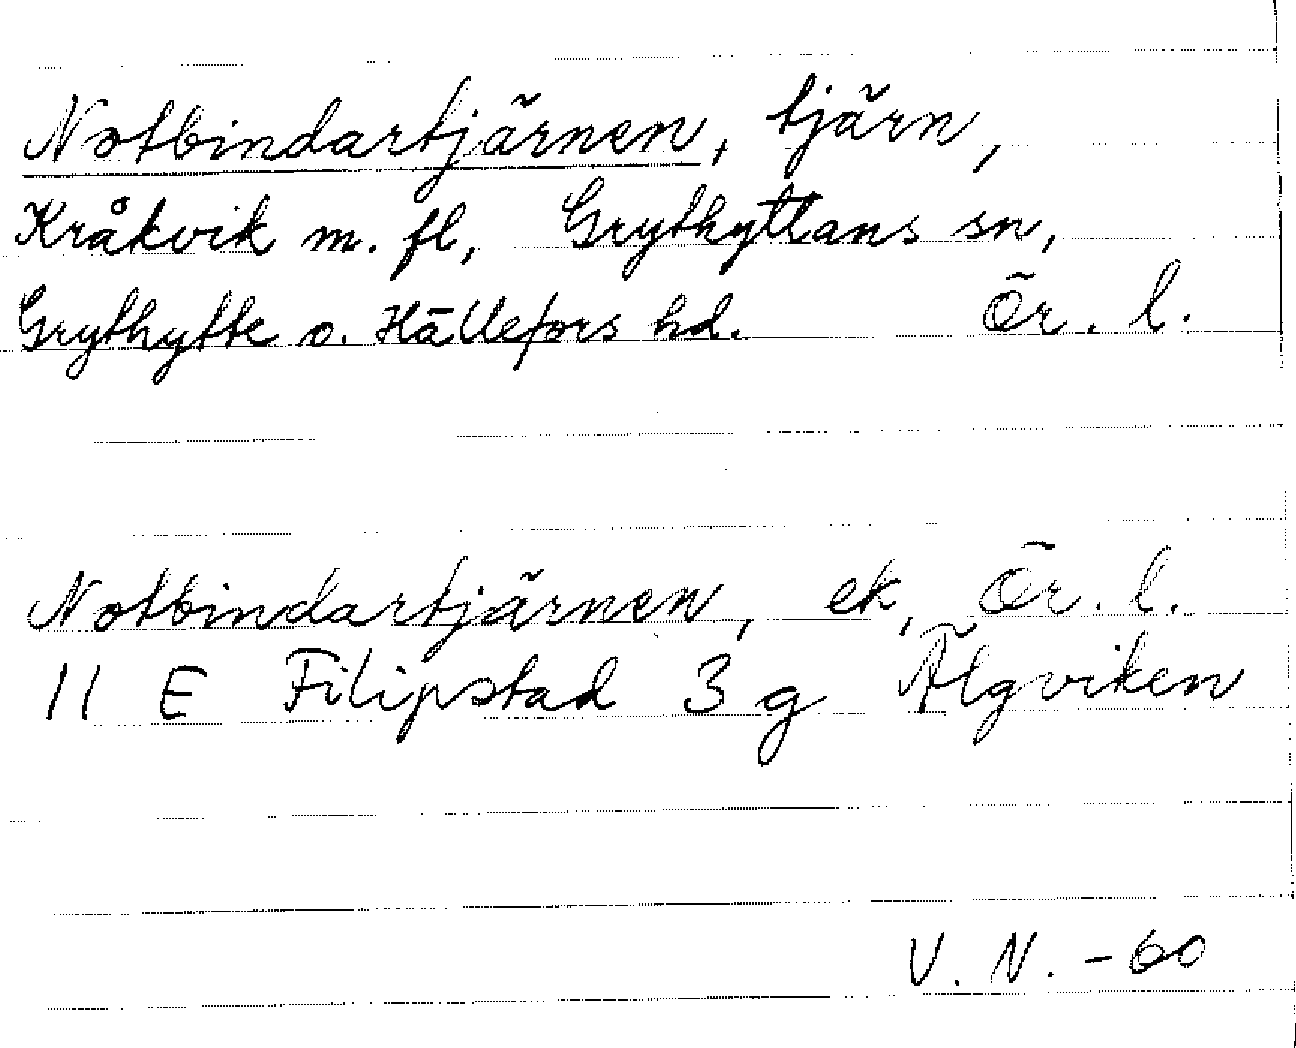 Notbindartjärnen, tjärn,
Kråkvik m. fl, Grythyttans sn,
Grythytte o. Hällefors hd. Ör. l.
Notbindartjärnen, ek, Ör. l.
11 E Filipstad 3 g Älgviken
V. N. -60